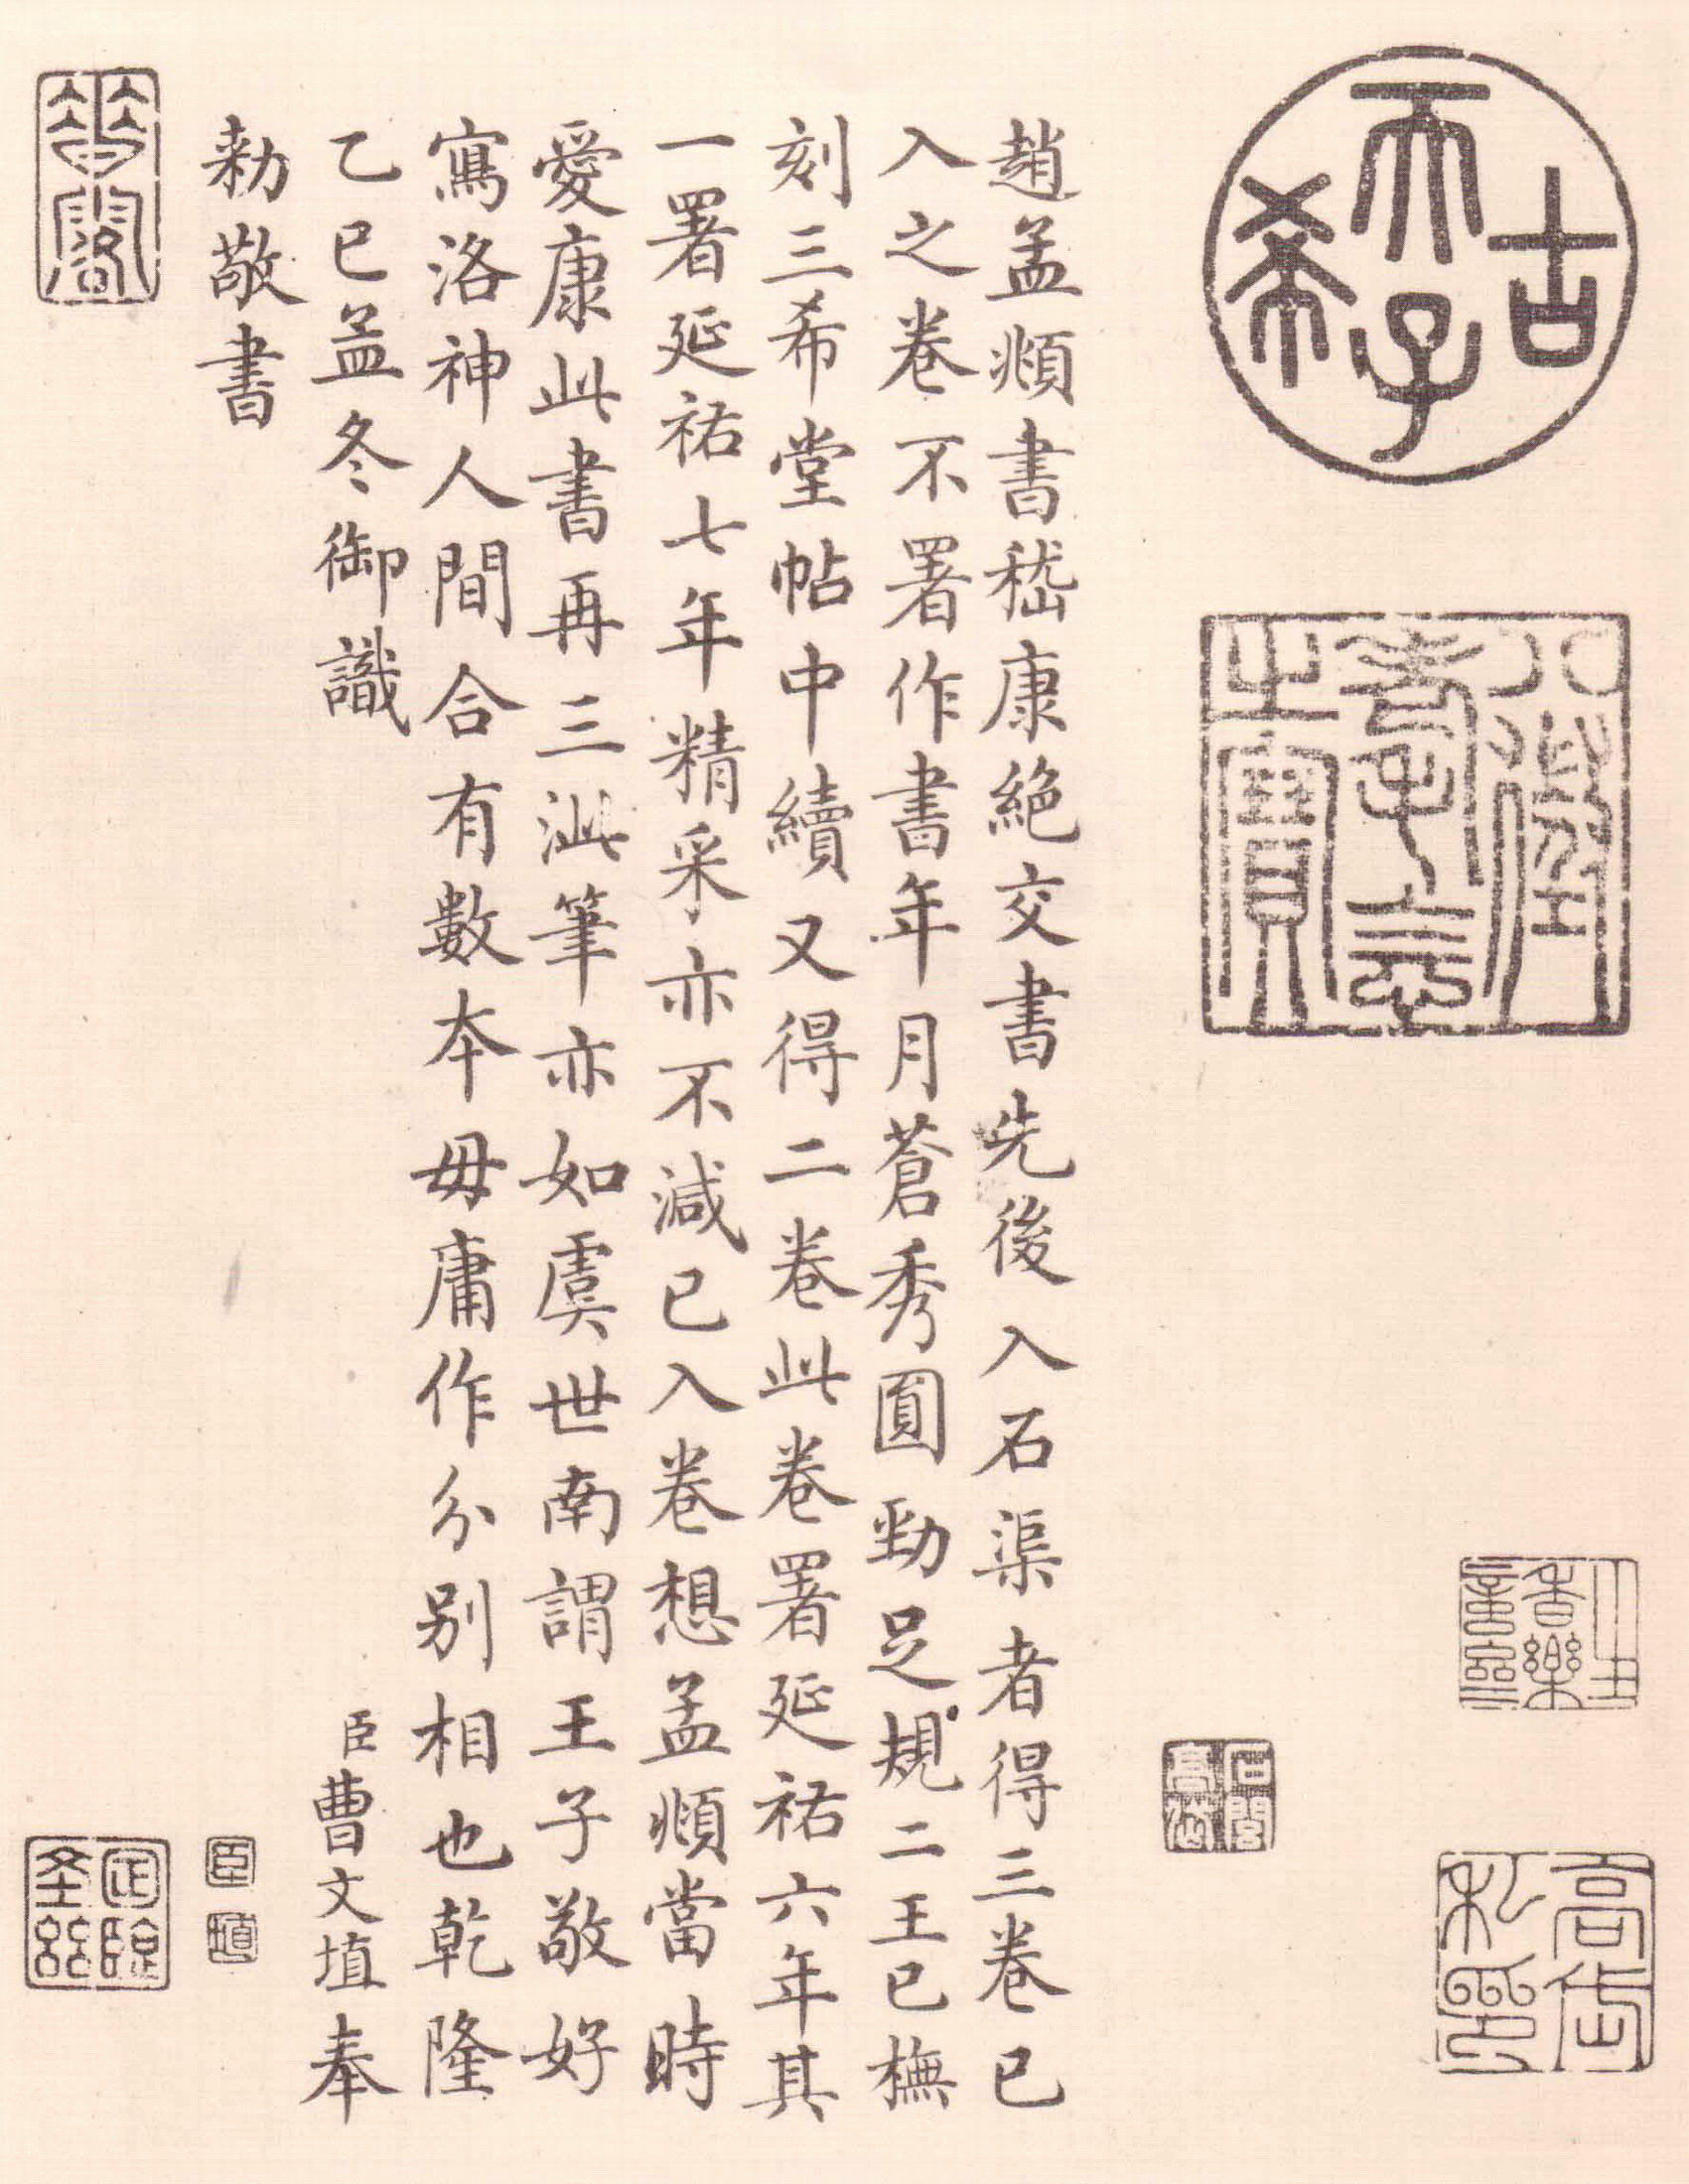 古
天子
希
八徵
耄念
之寶
趙孟頫書嵇康絕交書先後入石渠者得三卷已
入之卷不署作書年月蒼秀圓勁足規二王已橅
刻三希堂帖中續又得二卷此卷署延祐六年其
一署延祐七年精采亦不減已入卷想孟頫當時
愛康此書再三泚筆亦如虞世南謂王子敬好
寫洛神人間合有數本毋庸作分別相也乾隆
乙巳孟冬御識
臣曹文埴奉
勅敬書
臣
埴